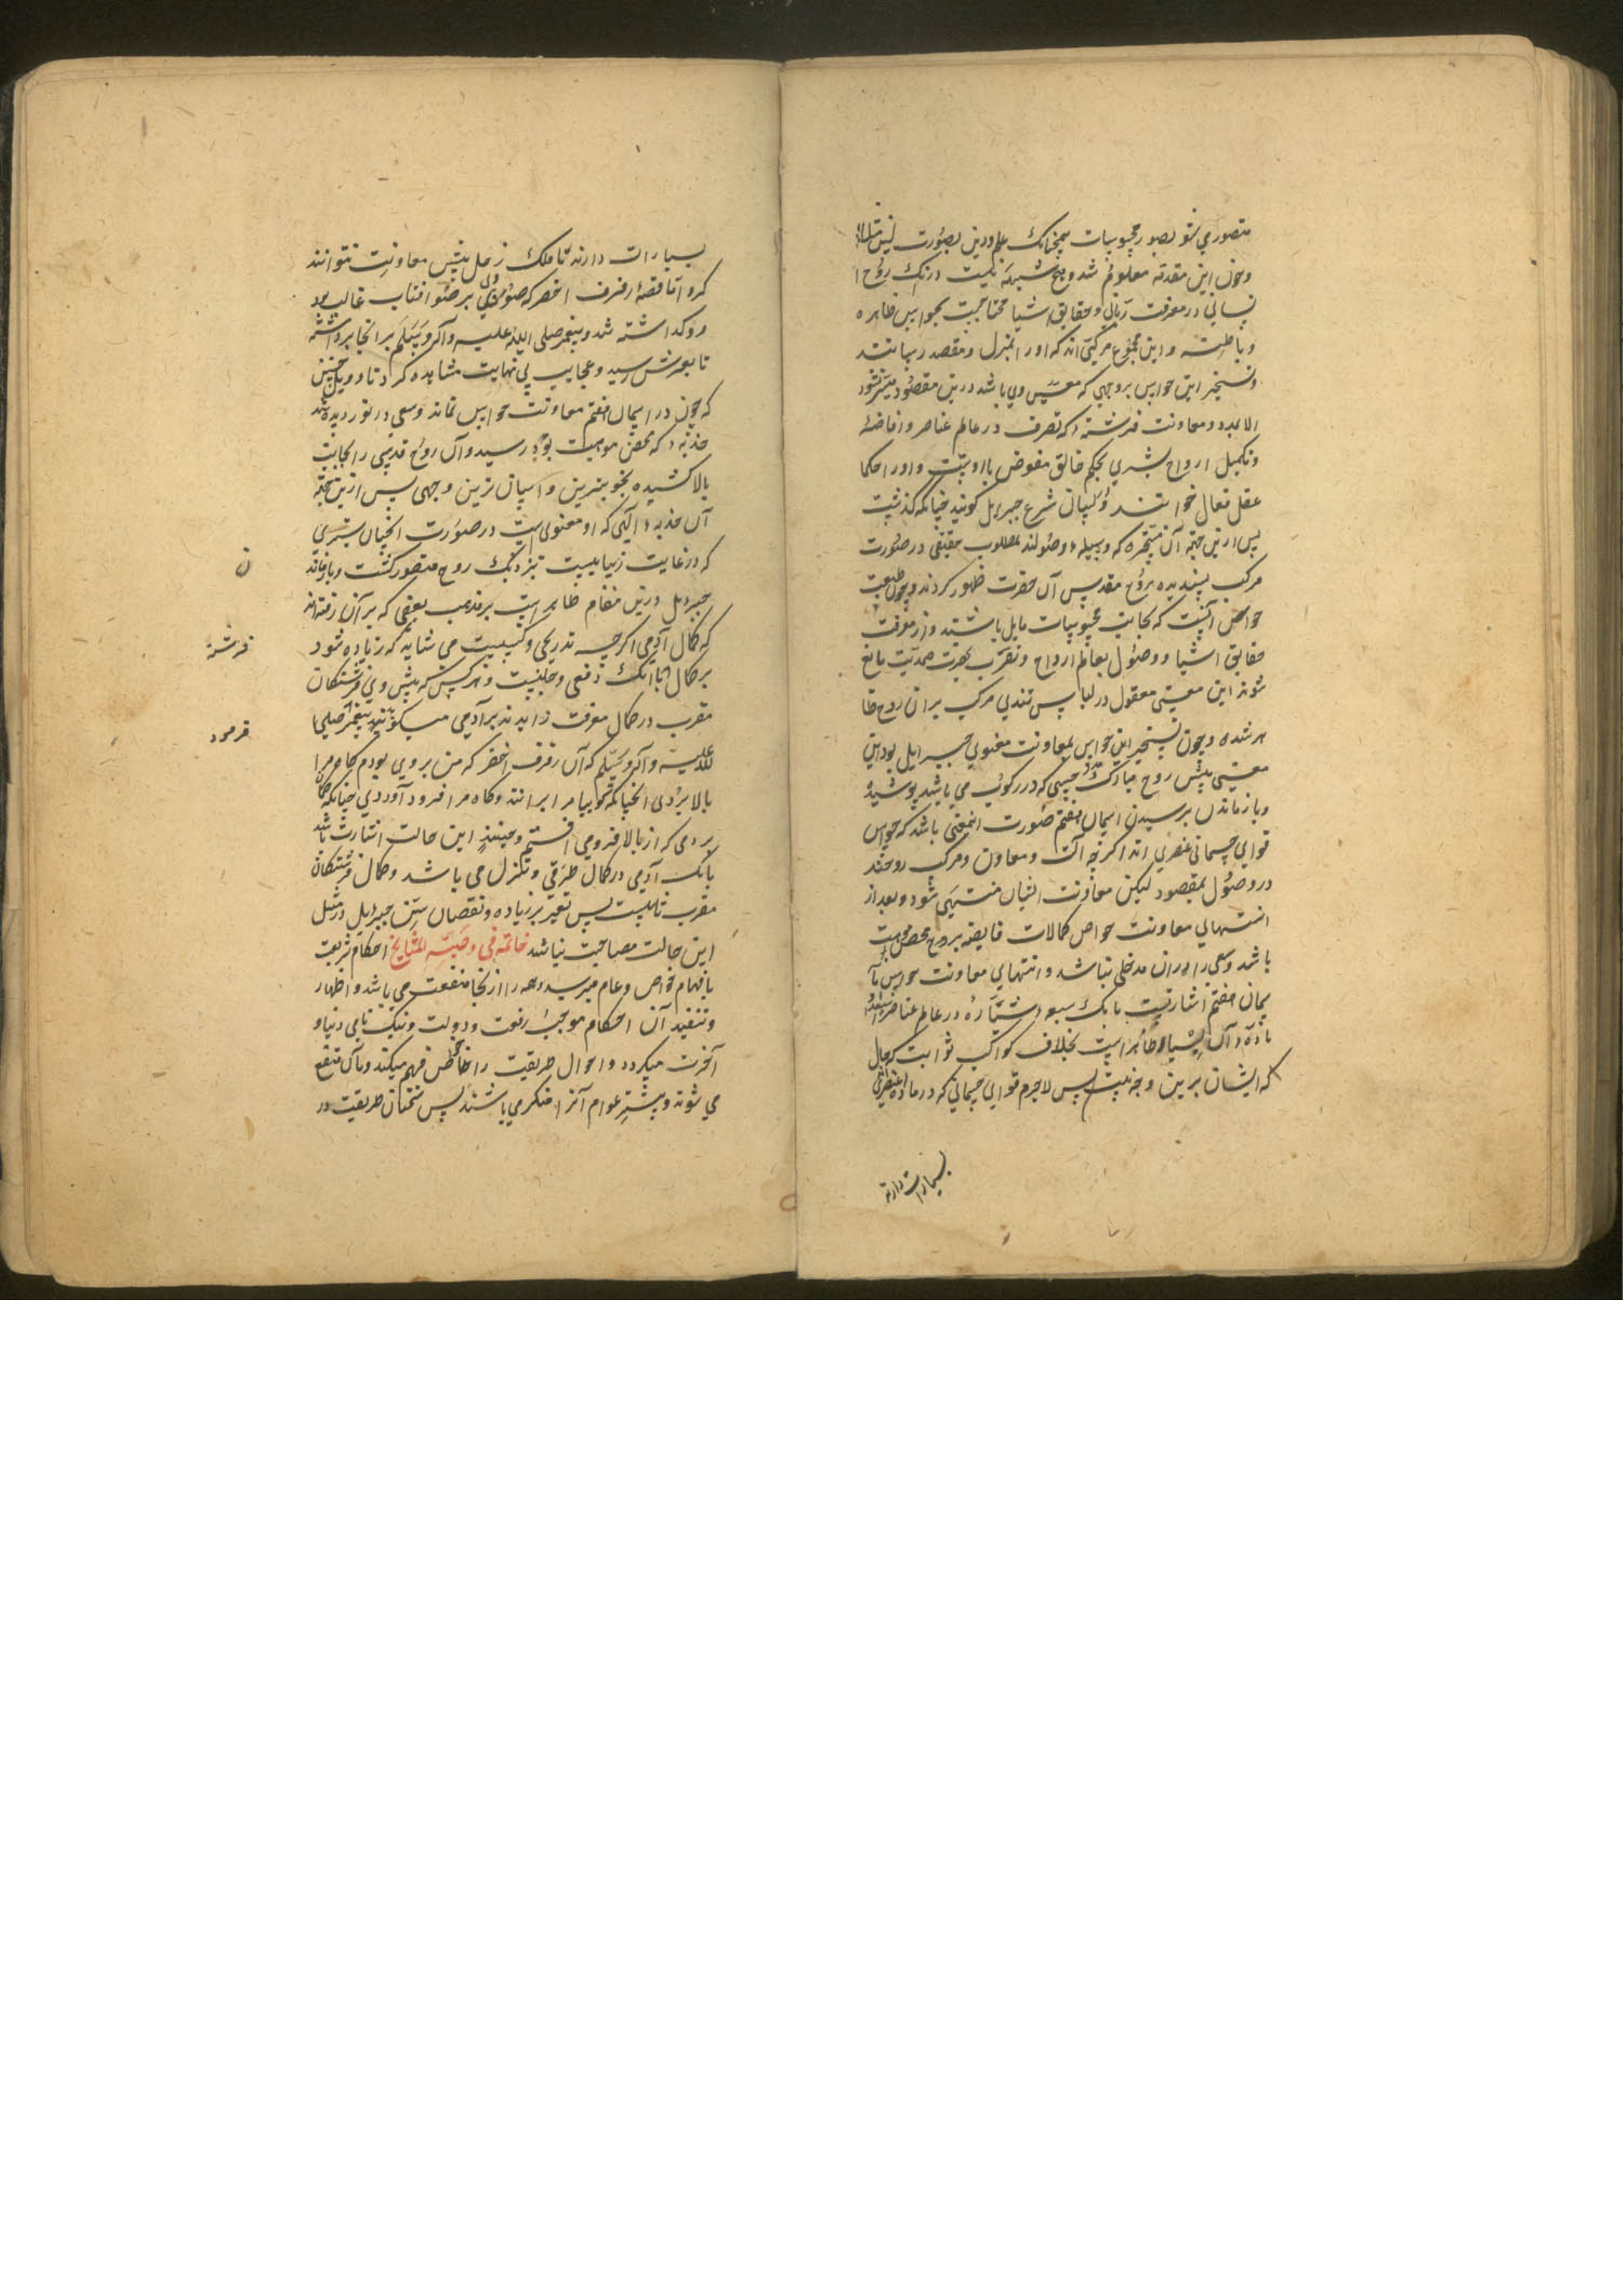 متصور می شو بصور محبوبات همچنانک علم درین بصورت لبن
وچون این مقدمه معلوم شد و هیچ شبهه نیست درانک روح ا
نسانی در معرفت ربانی و حقایق اشیا محتاجیت بحواس ظاهره
وباطنه واین مجموع مرکبی اند که اورا بمنزل ومقصد رسانند
وتسخیر این حواس بروجهی که معین وی باشد درین مقصود میسر نشود
الا بمدد ومعاونت فرشته که تصرف در عالم عناصر وافاضه
وتکمیل ارواح بشری بحکم خالق مفوض بااوست واورا حکما
عقل فعال خوانند ولسان شرع جبریل کویند چنانکه کذشت
پس ازین جهة آن که وسیله وصولند بمطلوب حقیقی در صورت
مرکب پسندیده بروح مقدس آن حضرت ظهور کردند وچون طبیعت
حواس آنست که بجانب محبوبات مایل باشند واز معرفت
حقایق اشیا ووصول بعالم ارواح وتقرب بحضرت صمدیت مانع
شوند این معنی معقول در لباس تندی مرکب بران روح ظا
هر شده وچون تسخیر این حواس بمعاونت معنوی جبرایل بود این
معنی پیش روح مبارک که در رکوب می باشد پوشیده
وبازماندن برسیدن اسمان هفتم صورت انمعنی باشد که حواس
قوای جسمانی عنصری اند اکرچه آلت ومعاون ومرکب روحند
در وصول بمقصود لیکن معاونت ایشان منتهی شود وبعد از
انتهای معاونت حواص کمالات فایضه بروح محض موهبت
باشد وسعی را دران مدخلی نباشد وانتهای معاونت حواس بآ
سمان هفتم اشارتست بانک سبعه سیاره در عالم عناصر
ماده آن اشیا ظاهر است بخلاف کواکب ثوابت که حال
که ایشان برین وجه نیست پس لاجرم قوای جسمانی که در ماده عنصری
سیارات دارند
سیارات دارند تا فلک زحل بیش معاونت نتوانند
کرد اتا قصهٔ رفرف اخضر که ضوء وی بر ضوء افتاب غالب بود
روکداشته شد وپیغمبر صلی الله علیه وآله وسلم برانجا برداشته
تا بعرش رسید وعجایب بی نهایت مشاهده کرد تا وویل چنین
که چون در اسمان هفتم معاونت حواس نماند وسعی در نوردیده شد
جذبه که محض موهبت بود رسید وآن روح قدسی را بجانب
بالا کشیده بخوبترین واسان ترین وجهی پس ازین جهة
آن جذبه الهی که او معنوی است در صورت انچنان بستری
که در غایت زیباییست بنزدیک روح متصور کشت وبازماند
ن
جبرییل درین مقام ظاهر است بر مذهب بعضی که بر آن رفته اند
که کمال آدمی اکرچه تدریجی وکسبیست می شاید که زیاده شود
فرشته
بر کمال باانک دفعی وجبلیست وهرکس که پیش وی فرشتکان
مقرب در کمال معرفت زایدند بر آدمی میکویند پیغمبر صلی ا
فرمود
لله علیه وآله وسلم که آن رفرف اخضر که من بروی بودم کاه مرا
بالا بردی انچنانکه کویا مرا براند وکاه مرا فرود آوردی چنانکه کمان
بردمی که از بالا فرو می افتم وحینئذ این حالت اشارت باشد
بانک آدمی در کمال ترقی وتنزل می باشد وکمال فرشتکان
مقرب ثابتست پس تغیر بر زیاده ونقصان جبرئیل در مثل
این حالت مصاحبت نباشد خاتمه فی وصیة المشایخ احکام شریعت
بافهام خواص وعام میرسد وهمه را ازنجا منفعت می باشد واظهار
وتنفید آن احکام موجب رفعت ودولت ونیک نامی دنیا و
آخرت میکردد واحوال طریقت را خاص فهم میکند وبآن منتفع
می شوند وبیشتر عوام آنرا منکر می باشند پس سخنان طریقت در